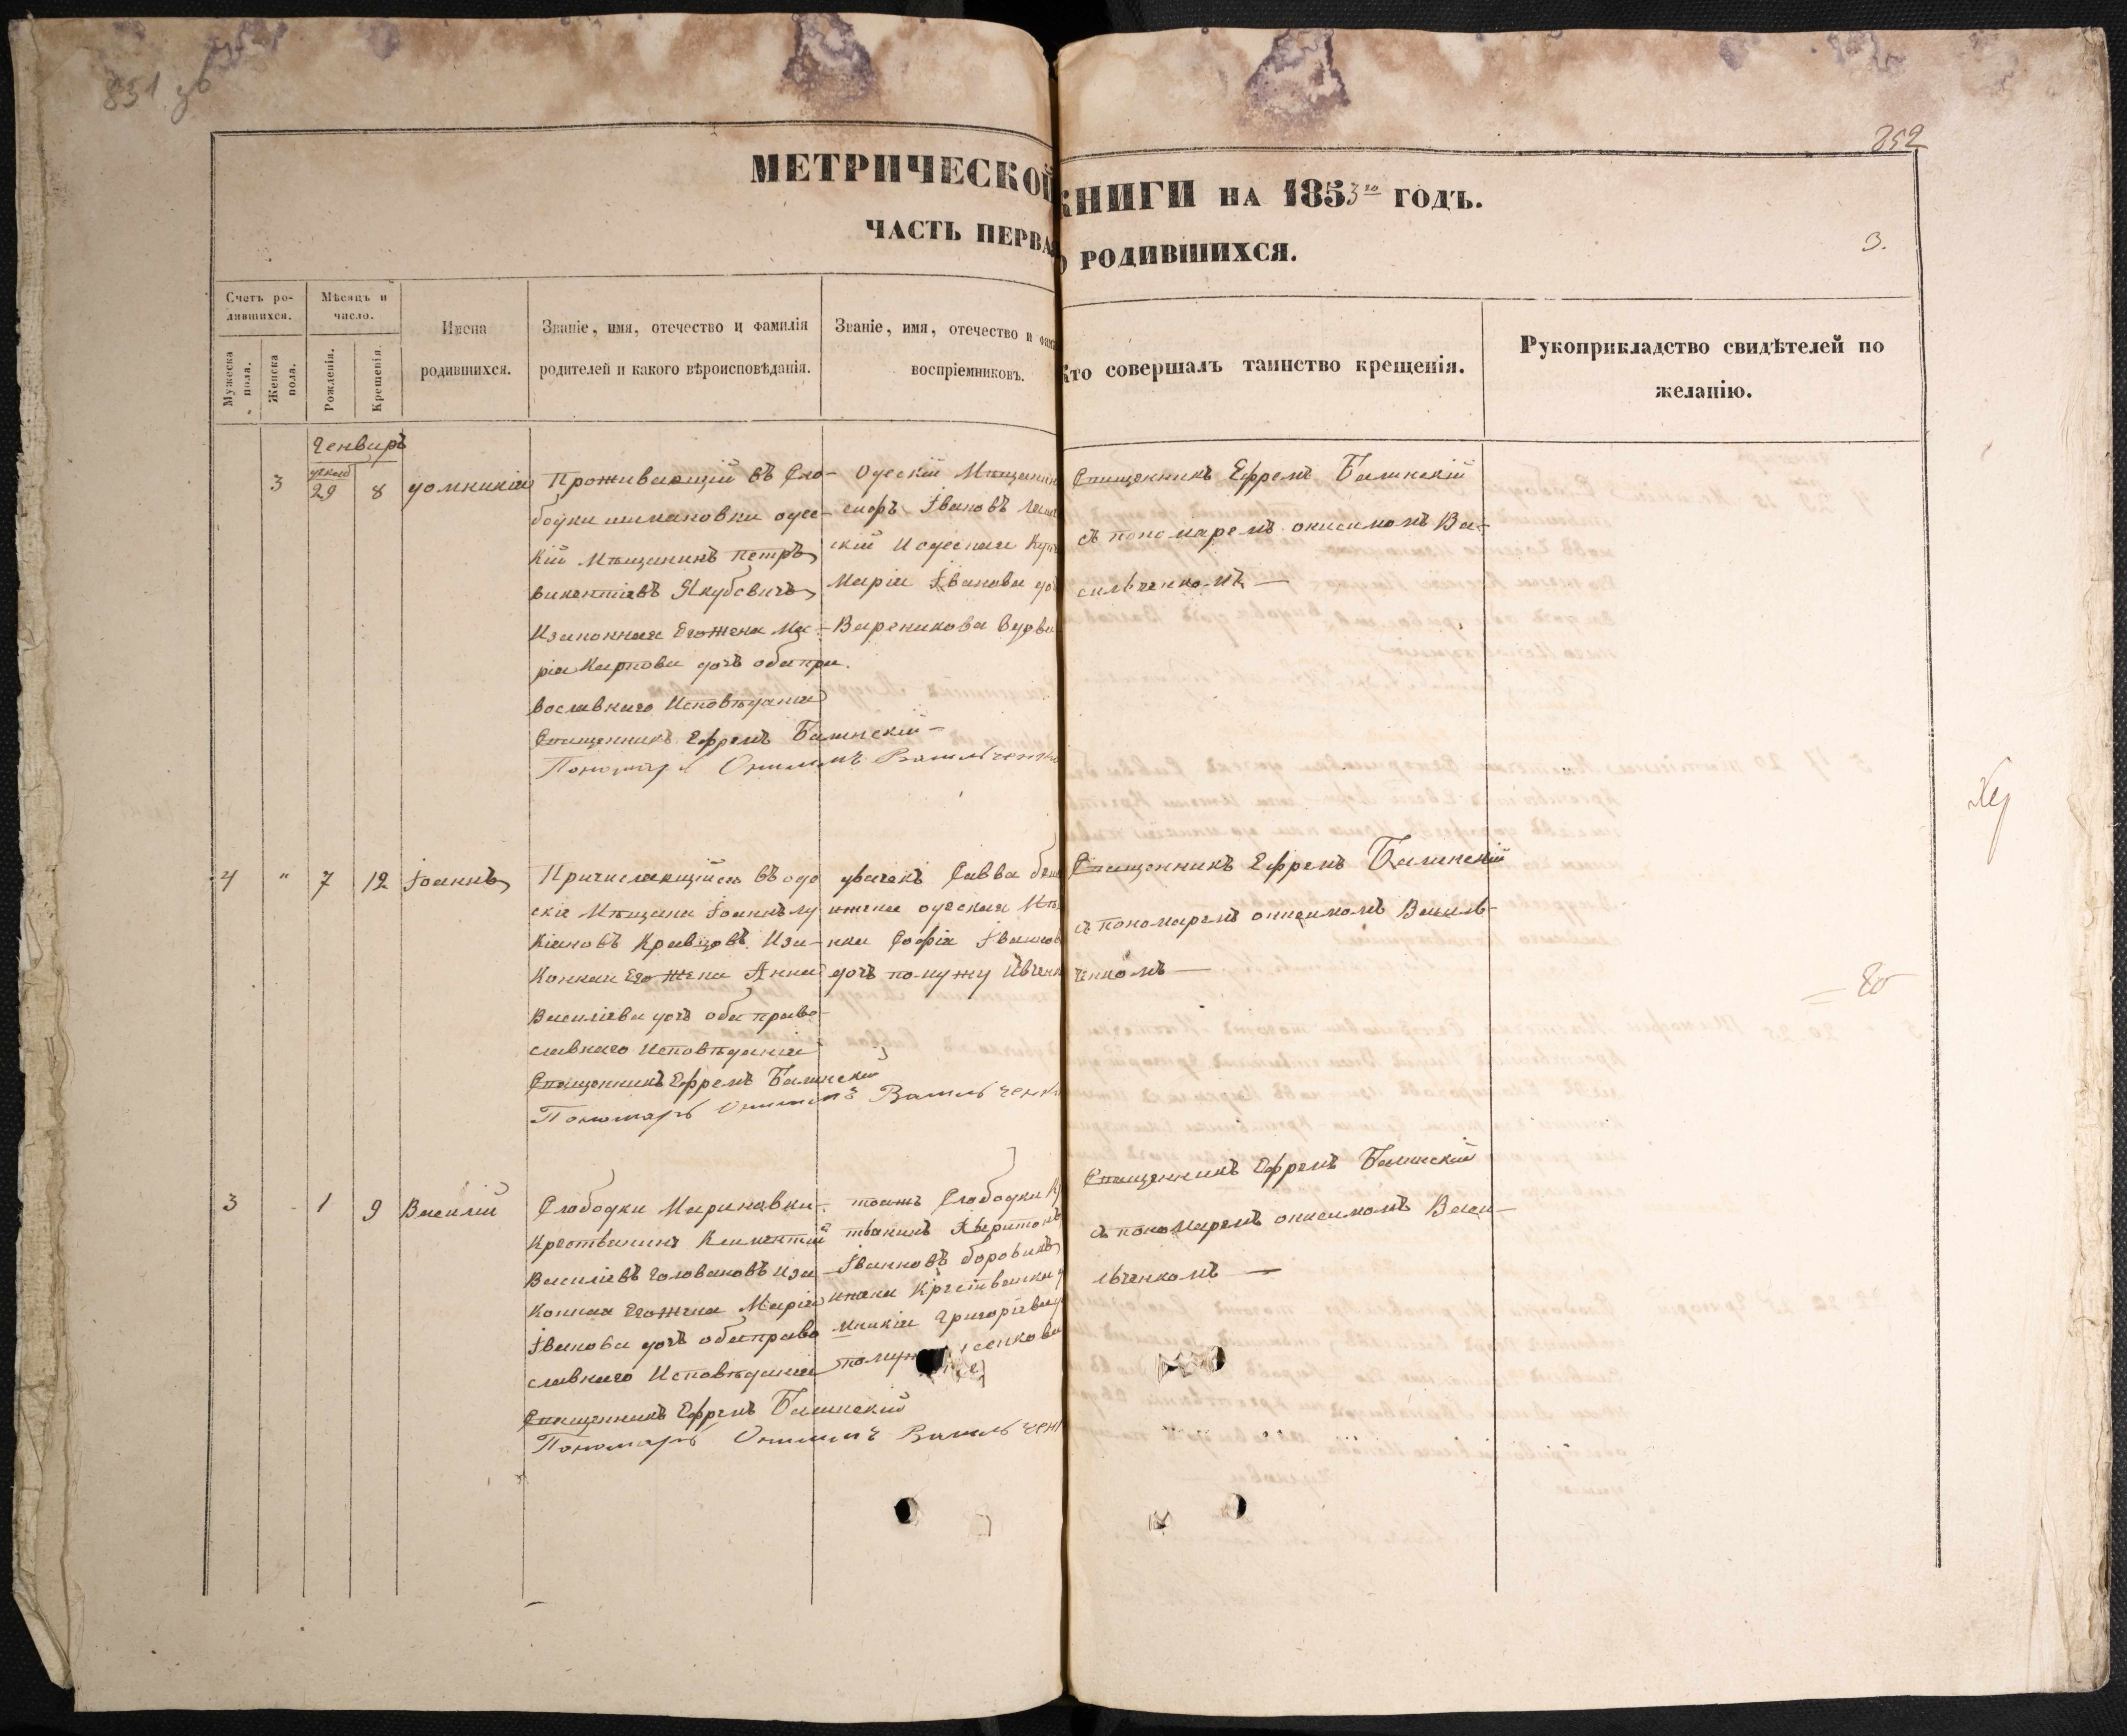 831 зв
852
МЕТРИЧЕСКОЙ КНИГИ НА 1853го ГОДЪ.
3.
ЧАСТЬ ПЕРВАЯ О РОДИВШИХСЯ.
Счетъ ро-
дившихся.
Мѣсяцъ и
число.
Мужеска
пола.
Женска
пола.
Рожденія.
Крещенія.
Имена
родившихся.
Званіе, имя, отечество и фамилія
родителей и какого вѣроисповѣданія.
Званіе, имя, отечество и фам
воспріемниковъ.
Кто совершалъ таинство крещенія.
Рукоприкладство свидѣтелей по
желанію.
Генварь
3 декаб 29 8 домникія
Проживающій въ Сло-
бодки шимановки одес-
кій Мѣщанинъ петръ
викентіевъ Якубовичъ
Изаконная Егожена Ма-
рія Карпова дочъ оба пра.
вославнаго Исповѣданія
Священникъ Ефремъ Балинскій
Пономарь Онисимъ Васильченко
Одескій Мѣщанин
сифъ Івановъ
скій Иодеская Куп
Марія Іванова до
Вареникова вдова
Священникъ Ефремъ Балинскій
съ пономаремъ онисимомъ Ва-
сильченкомъ —
4 " 7 12 Іоаннъ
Причисляющійся въ оде
скіе Мѣщане Іоаннъ лу
кіановъ Кравцовъ Иза-
конная Его Жена Анна
Василіева дочъ оба право-
славнаго Исповѣданія
Священникъ Ефремъ Балинскій
Пономарь Онисимъ Васильченко
двачекъ Савва
ижена одеская Мѣ
нка Софія Іванов
дочъ помужу Ивченк
Священникъ Ефремъ Балинскій
съ пономаремъ онисимомъ Василь-
ченкомъ —
3 - 1 9 Василій
Слободки Мариновки
Крестьянинъ Климентій
Василіевъ Головановъ иза
конная Егожена Марія
Іванова дочъ оба право
славнаго Исповѣданія
Священникъ Ефремъ Балинскій
Пономарь Онисимъ Васильчен
тоятъ Слободки Кр
тьянинъ Харитонъ
Івановъ боровикъ
ижена Крестьянка д
мникія Григоріева
помуж
Священникъ Ефремъ Балинскій
съ пономаремъ онисимомъ Васи-
льченкомъ —